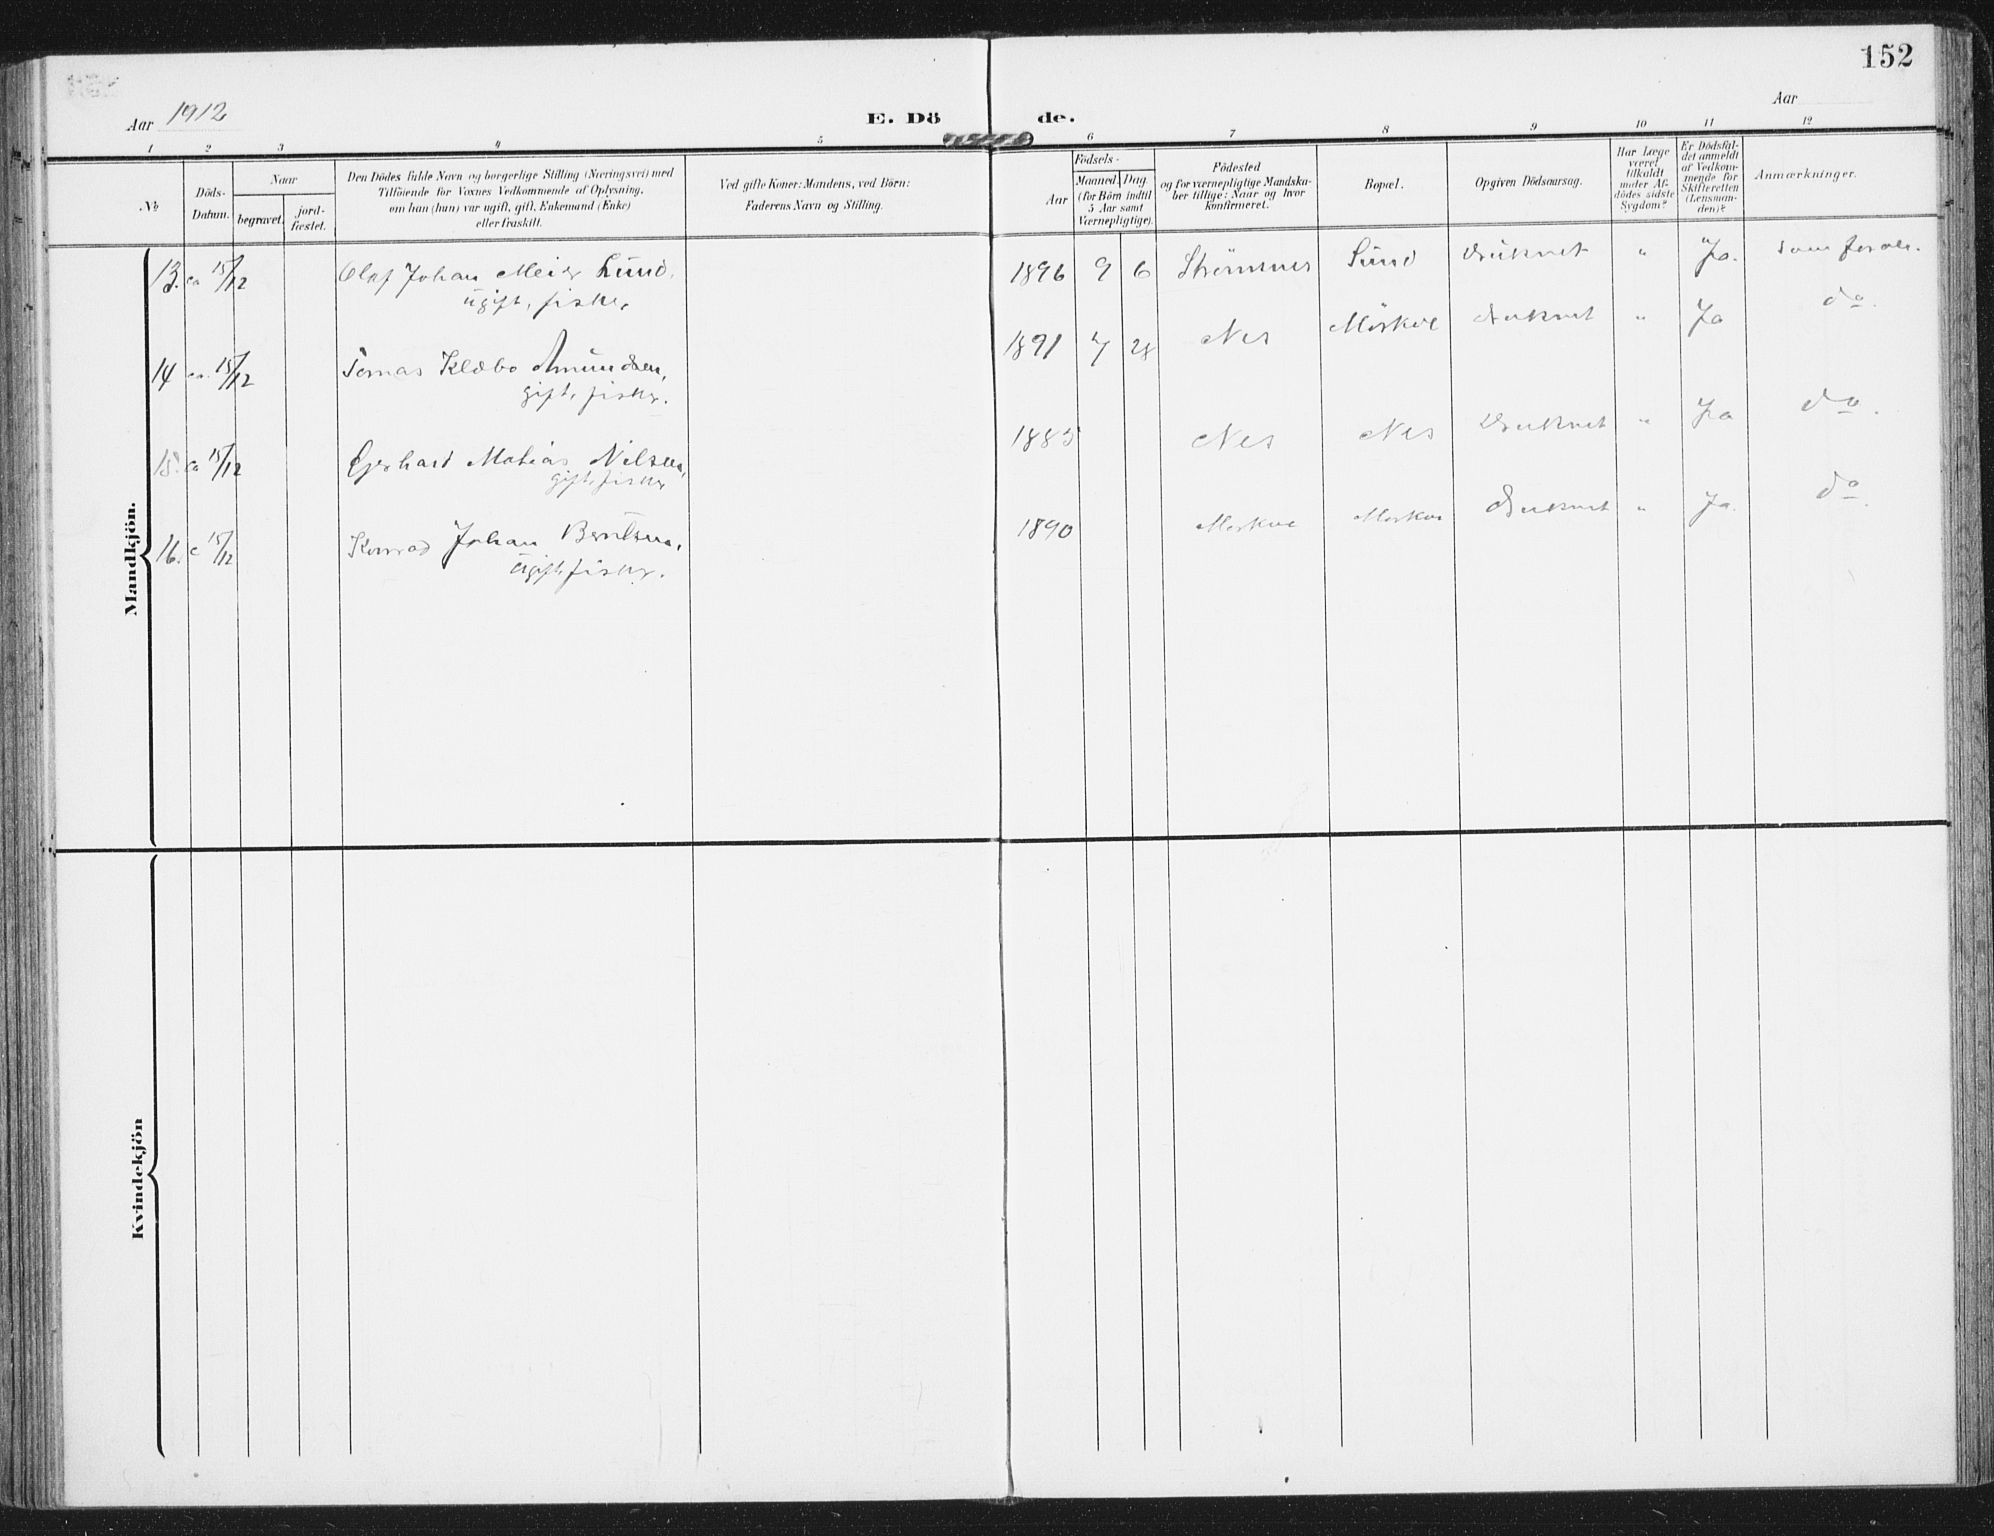 152
Aar 1912
E. Dö de.
Aar
1 2 3 4 5 6 7 8 9 10 11 12
№
Döds-
Datum.
Naar
begravet.
jord-
fæstet.
Den Dödes fulde Navn og borgerlige Stilling (Næringsvei) med
Tilföiende for Voxnes Vedkommende af Oplysning,
om han (hun) var ugift, gift, Enkemand (Enke)
eller fraskilt.
Ved gifte Koner: Mandens, ved Börn:
Faderens Navn og Stilling.
Födsels-
Aar
Maaned Dag
(for Börn indtil
5 Aar samt
Værnepligtige).
Födested
og for værnepligtige Mandska-
ber tillige: Naar og hvor
konfirmeret.
Bopæl.
Opgiven Dödsaarsag.
Har Læge
været
tilkaldt
under Af-
dödes sidste
Sygdom?
Er Dödsfal-
det anmeldt
af Vedkom-
mende for
Skifteretten
(Lensman-
den)?
Anmærkninger.
Mandkjön.
13. ca 15/12 Olaf Johan Meier Lund, 1896 9 6 Strømmes Sund Druknet " Ja. som foran.
ugift, fisker
14 ca. 15/12 Tomas Klæbo Amundsen, 1891 7 28 Nes Mörkve Druknet " Ja do.
gift, fisker.
15. ca 15/12 Gerhard Matias Nilsen, 1885 Nes Nes Druknet " Ja do.
gift, fisker
16. c 15/12 Konrad Johan Berntsen, 1890 Morkve Morkve Druknet " Ja. do.
ugift, fisker.
Kvindekjön